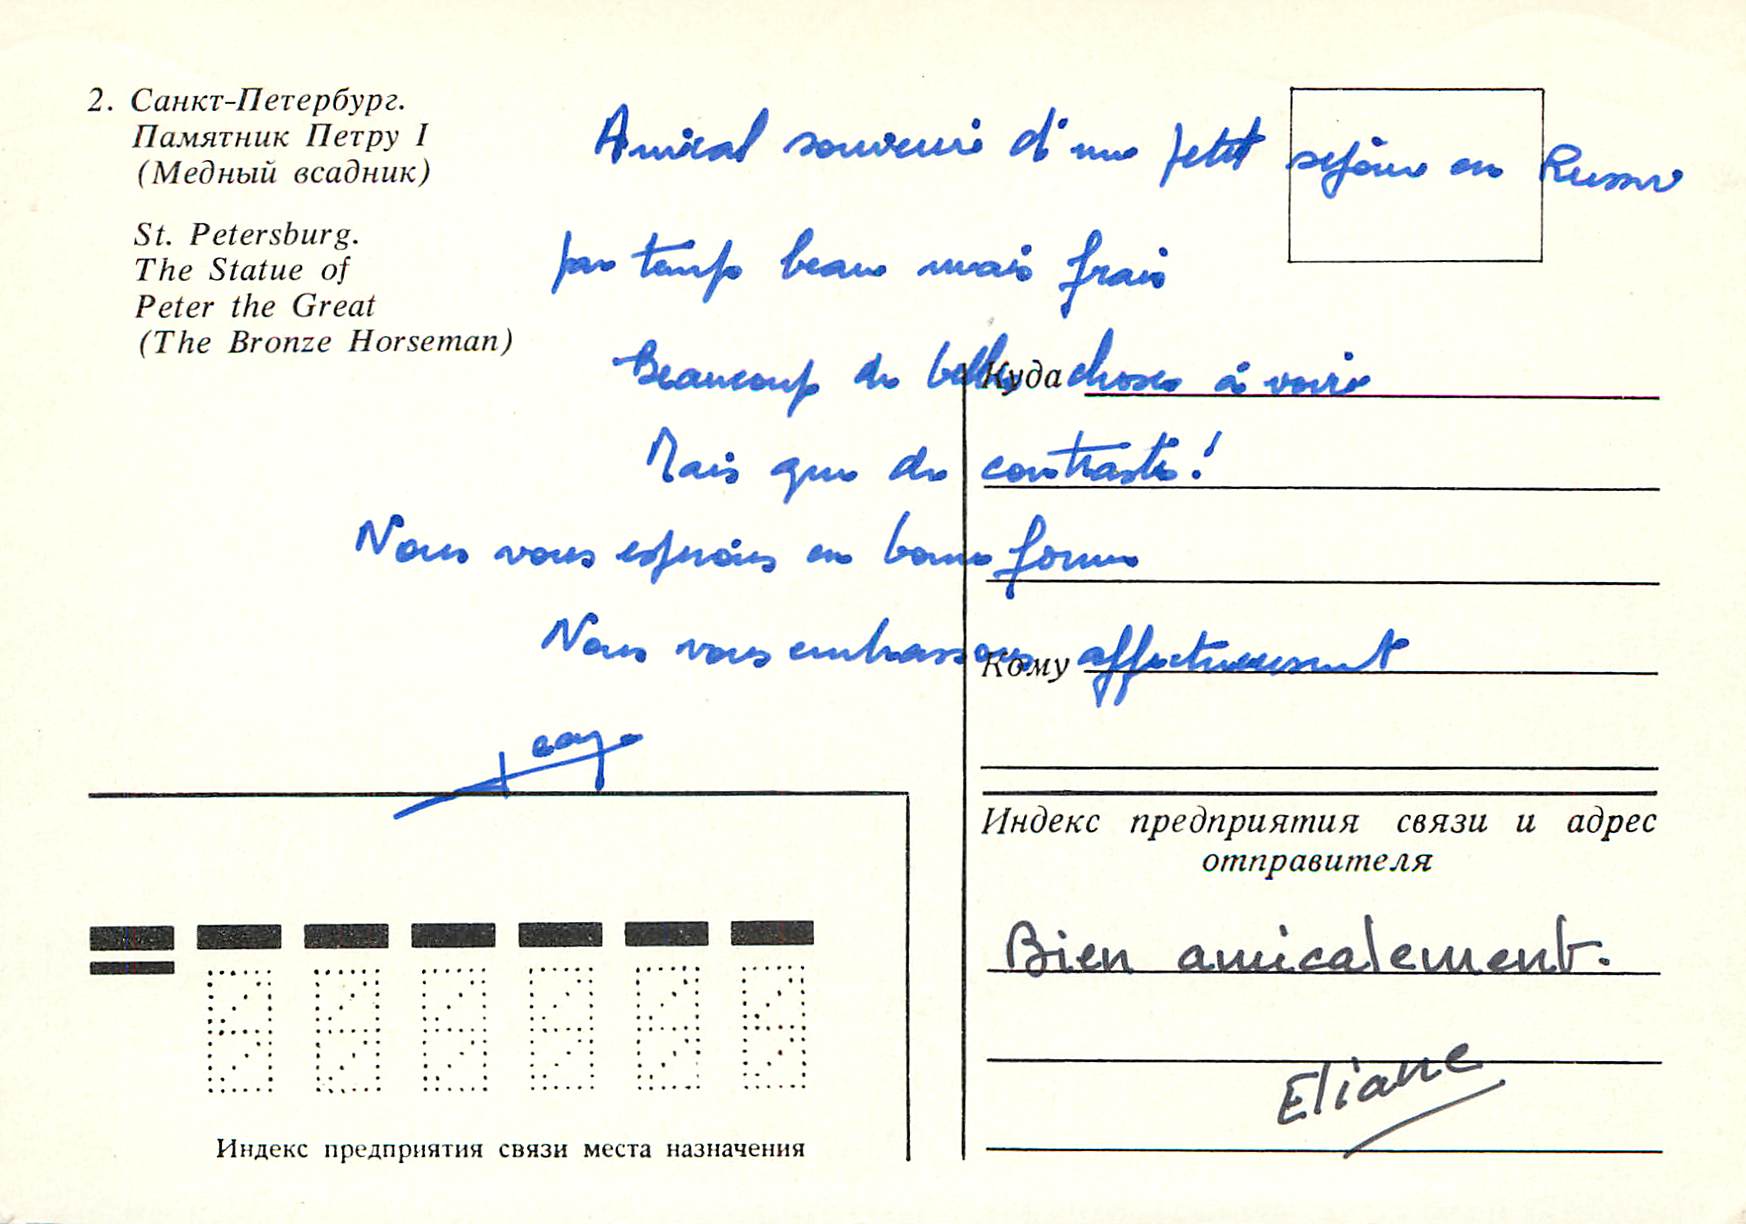 2. Санкт-Петербург.
Памятник Петру I
(Медный всадник)
St. Petersburg.
The Statue of
Peter the Great
(The Bronze Horseman)
Amical souvenir d'un petit séjour en Russie
par temps beau mais frais
Beaucoup de belles choses à voir
Mais que de contraste!
Nous vous espérons en bonne forme
Nous vous embrassons affectueusement
Куда
Кому
Индекс предприятия связи и адрес
отправителя
Bien amicalement.
Eliane
Индекс предприятия связи места назначения